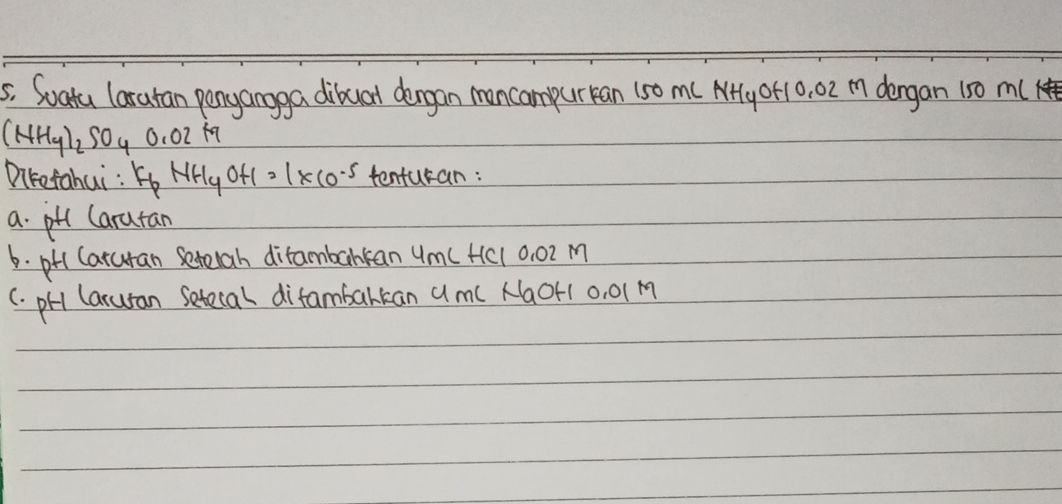 5. Suatu larutan penyangga dibuat dengan mencampurkan 150 mL NH4OH 0,02 M dengan 150 mL
(NH4)2SO4 0.02 M
Diketahui : Kb NH4OH = 1x10-5 tentukan :
a. pH larutan
b. pH larutan setelah ditambahkan 4mL HCl 0,02 M
c. pH larutan setelah ditambahkan 4 mL NaOH 0,01 M